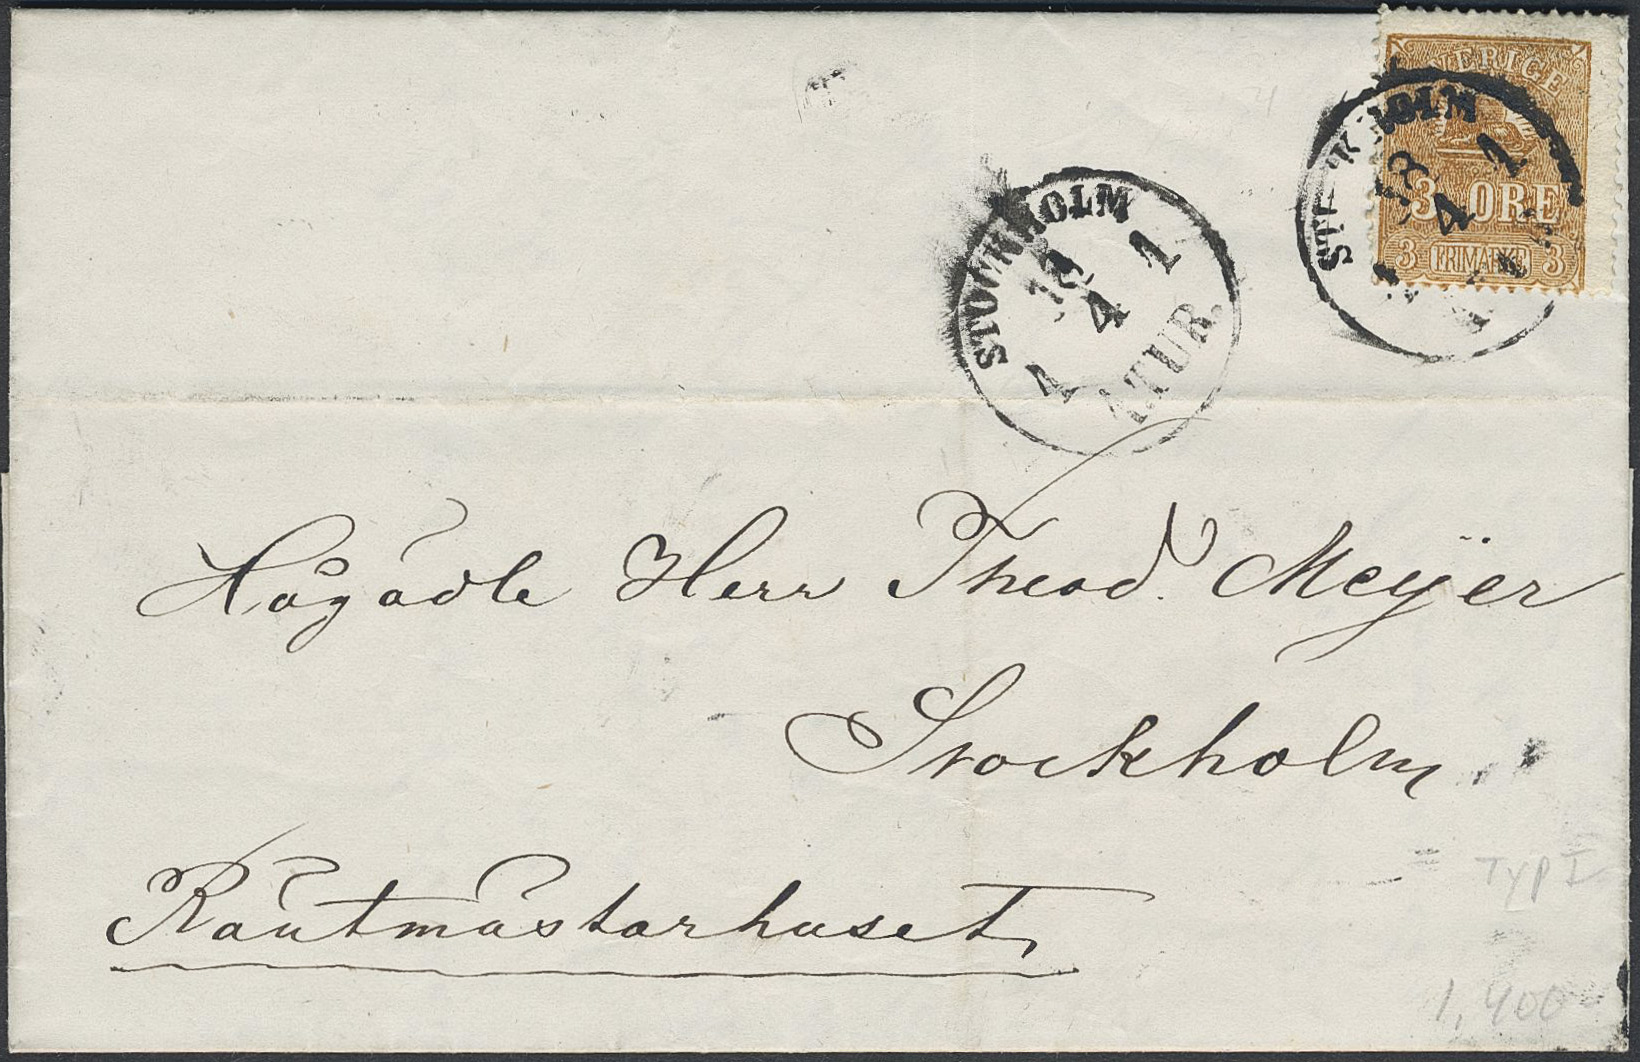 SVERIGE
3 ÖRE
3 FRIMÄRKE 3
STOCKHOLM
4 1
STOCKHOLM
4 1
1 A.TUR.
Högädle Herr Theod. Meÿer
Stockholm
Räntmästarhuset,
Typ I
1,400